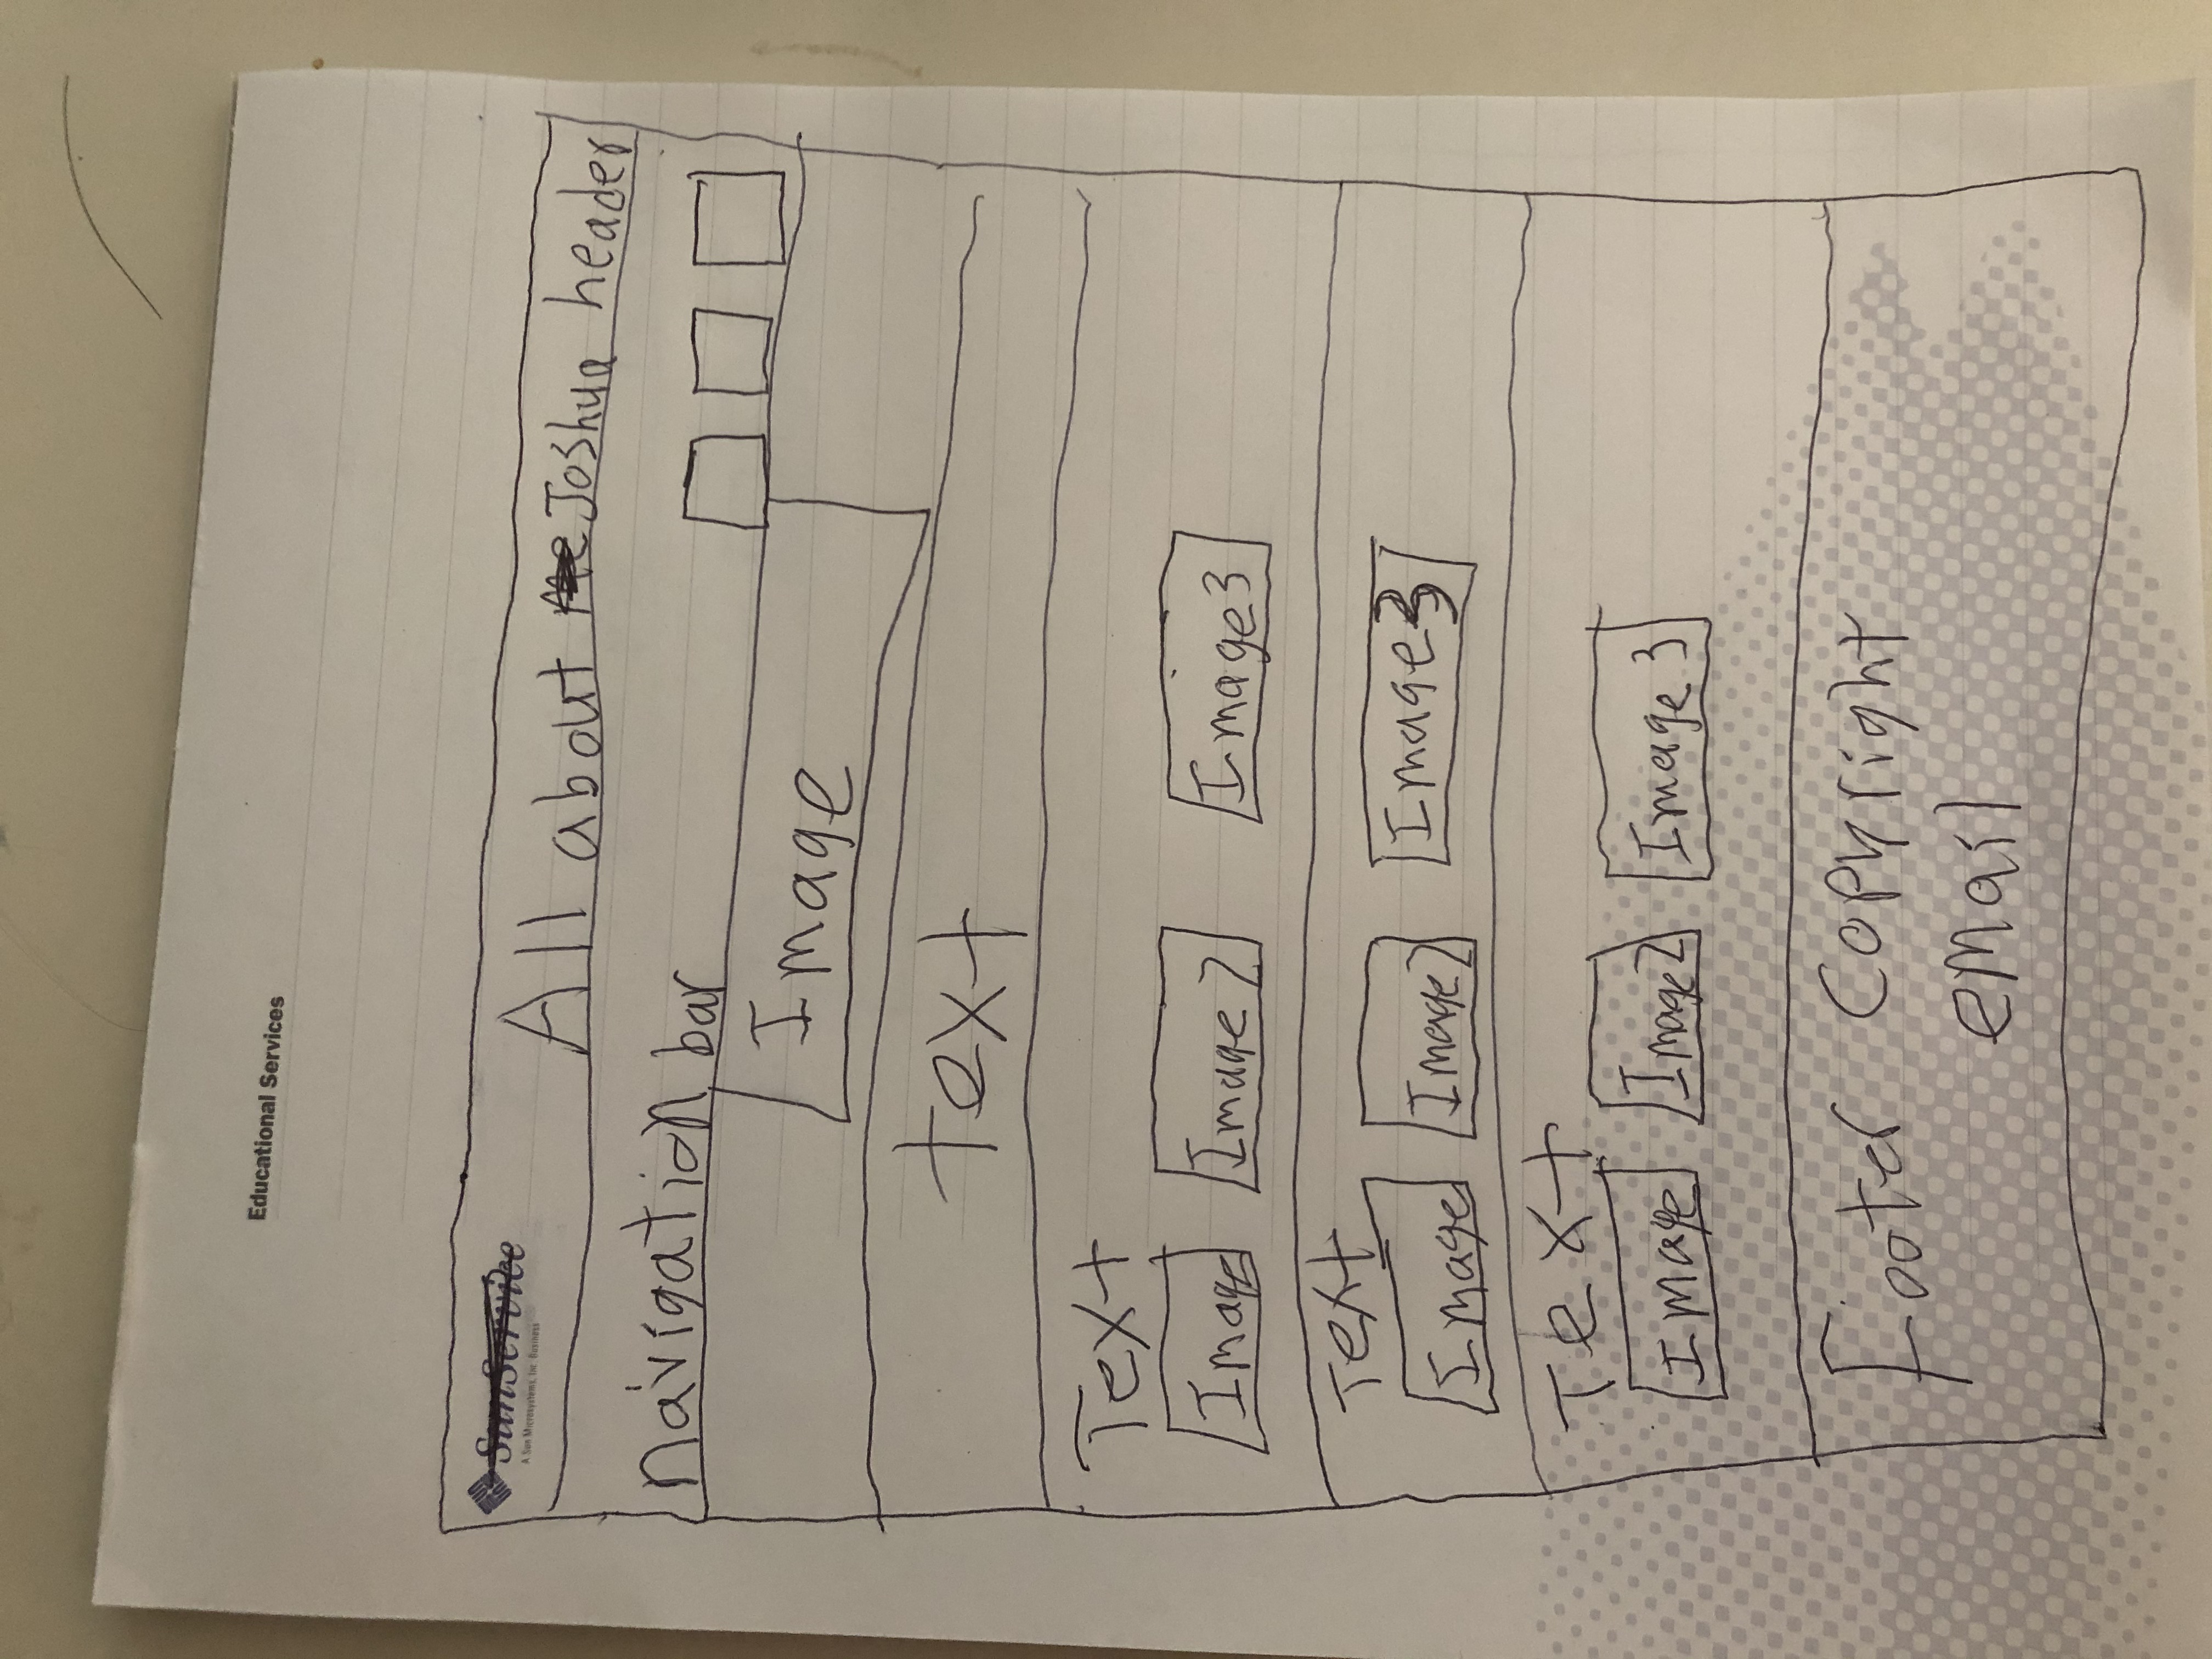 Educational Services
SunService
A Sun Microsystems, Inc. Business
All about Me Joshua header
navigation bar
Image
text
Text
Image Image 2 Image 3
Text
Image Image 2 Image 3
Text
Image Image 2 Image 3
Footer Copyright
email